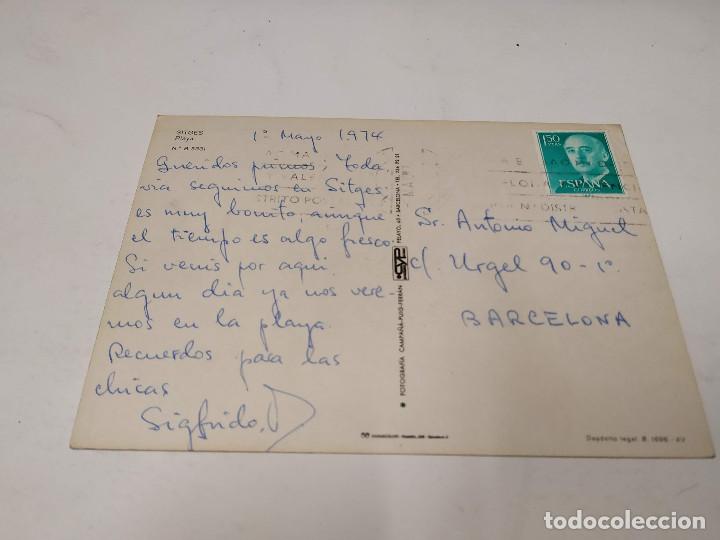 SITGES
Playa
1º Mayo 1974
Queridos primos; Toda
via seguimos en Sitges
es muy bonito, aunque
el tiempo es algo fresco.
Si venis por aqui
algun dia ya nos vere-
mos en la playa.
Recuerdos para las
chicas
Sigfrido.
FOTOGRAFÍA CAMPAÑA-PUIG-FERRÁN
CYP
PELAYO, 60 - BARCELONA - TEL.
1,50
PTAS
ESPAÑA
CORREOS
Sr. Antonio Miguel
c/ Urgel 90-1º
BARCELONA
Depósito legal B. 1696 - XV
todocoleccion
todocoleccion.net